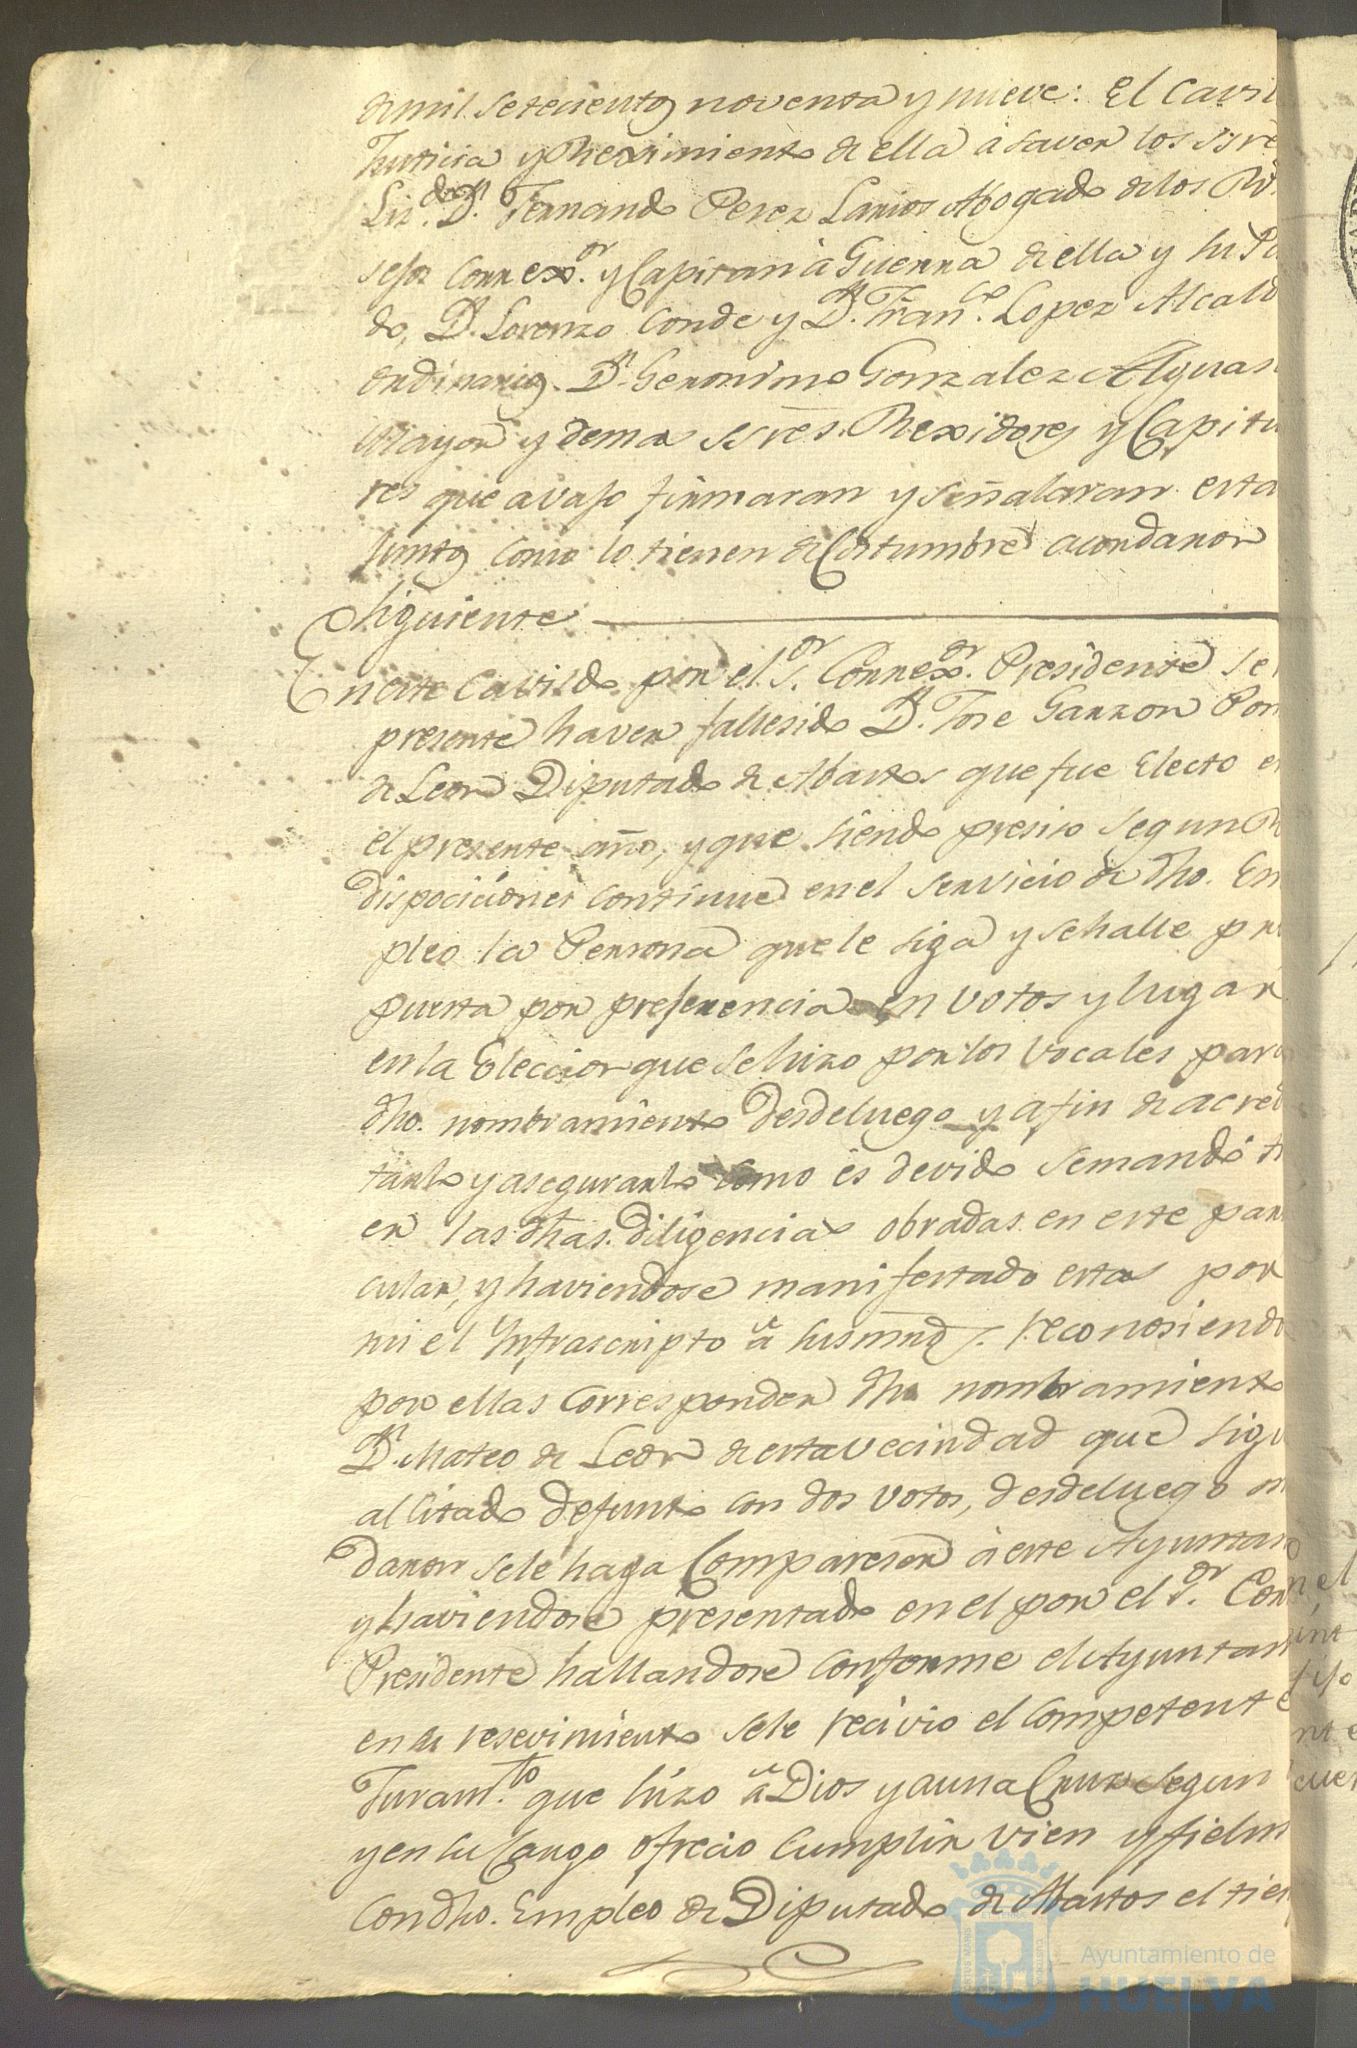 de mil setecientos noventa y nueve: El Cavil
Justicia y Reximiento de ella à saver los SSres
Liz.do D.n Fernando Perez Larios Abogado de los Rs.
sejos Correx.or y Capitan à Guerra de ella y su Pa
do, D.n Lorenzo Conde y D.n Fran.co Lopez Alcald
ordinarios. D.n Geronimo Gonzalez Alguas
Mayor y demas SSres. Rexidores y Capitu
res que avajo firmaran y señalaran esta
juntos como lo tienen de Costumbre acordaron
siguiente
En este Cavildo por el S.or Correx.or Presidente se
presente haver fallesido D.n Jose Garzon Pon
de Leon Diputado de Abastos que fue Electo e
el presente año, y que siendo presiso segun R
disposiciones continue en el servicio de dho. Em
pleo la Persona que le siga y se halle pr
puesta por preferencia en votos y lugar
en la Eleccion que se hizo por los Vocales par
dho. nombramiento desde luego y a fin de acred
tarlo y asegurarlo como es devido se mandó t
er las dhas. diligencias obradas en este par
cular, y haviendose manifestado estas por
mi el Infrascripto à sus mrds. reconosiendo
por ellas corresponder dho nombramiento
D.n Mateo de Leon de esta vecindad que sigu
al citado defunto con dos votos, desde luego
daron se le haga Compareser à este Ayuntam
y haviendose presentado en el por el S.or Corr
Presidente hallandose conforme el Ayuntam
en su resevimiento se le recivio el competente
Juram.to que hizo à Dios y a una Cruz segun
y en su Cargo ofrecio cumplir vien y fielm
con dho. Empleo de Diputado de Abastos el tiem
Ayuntamiento de
HUELVA